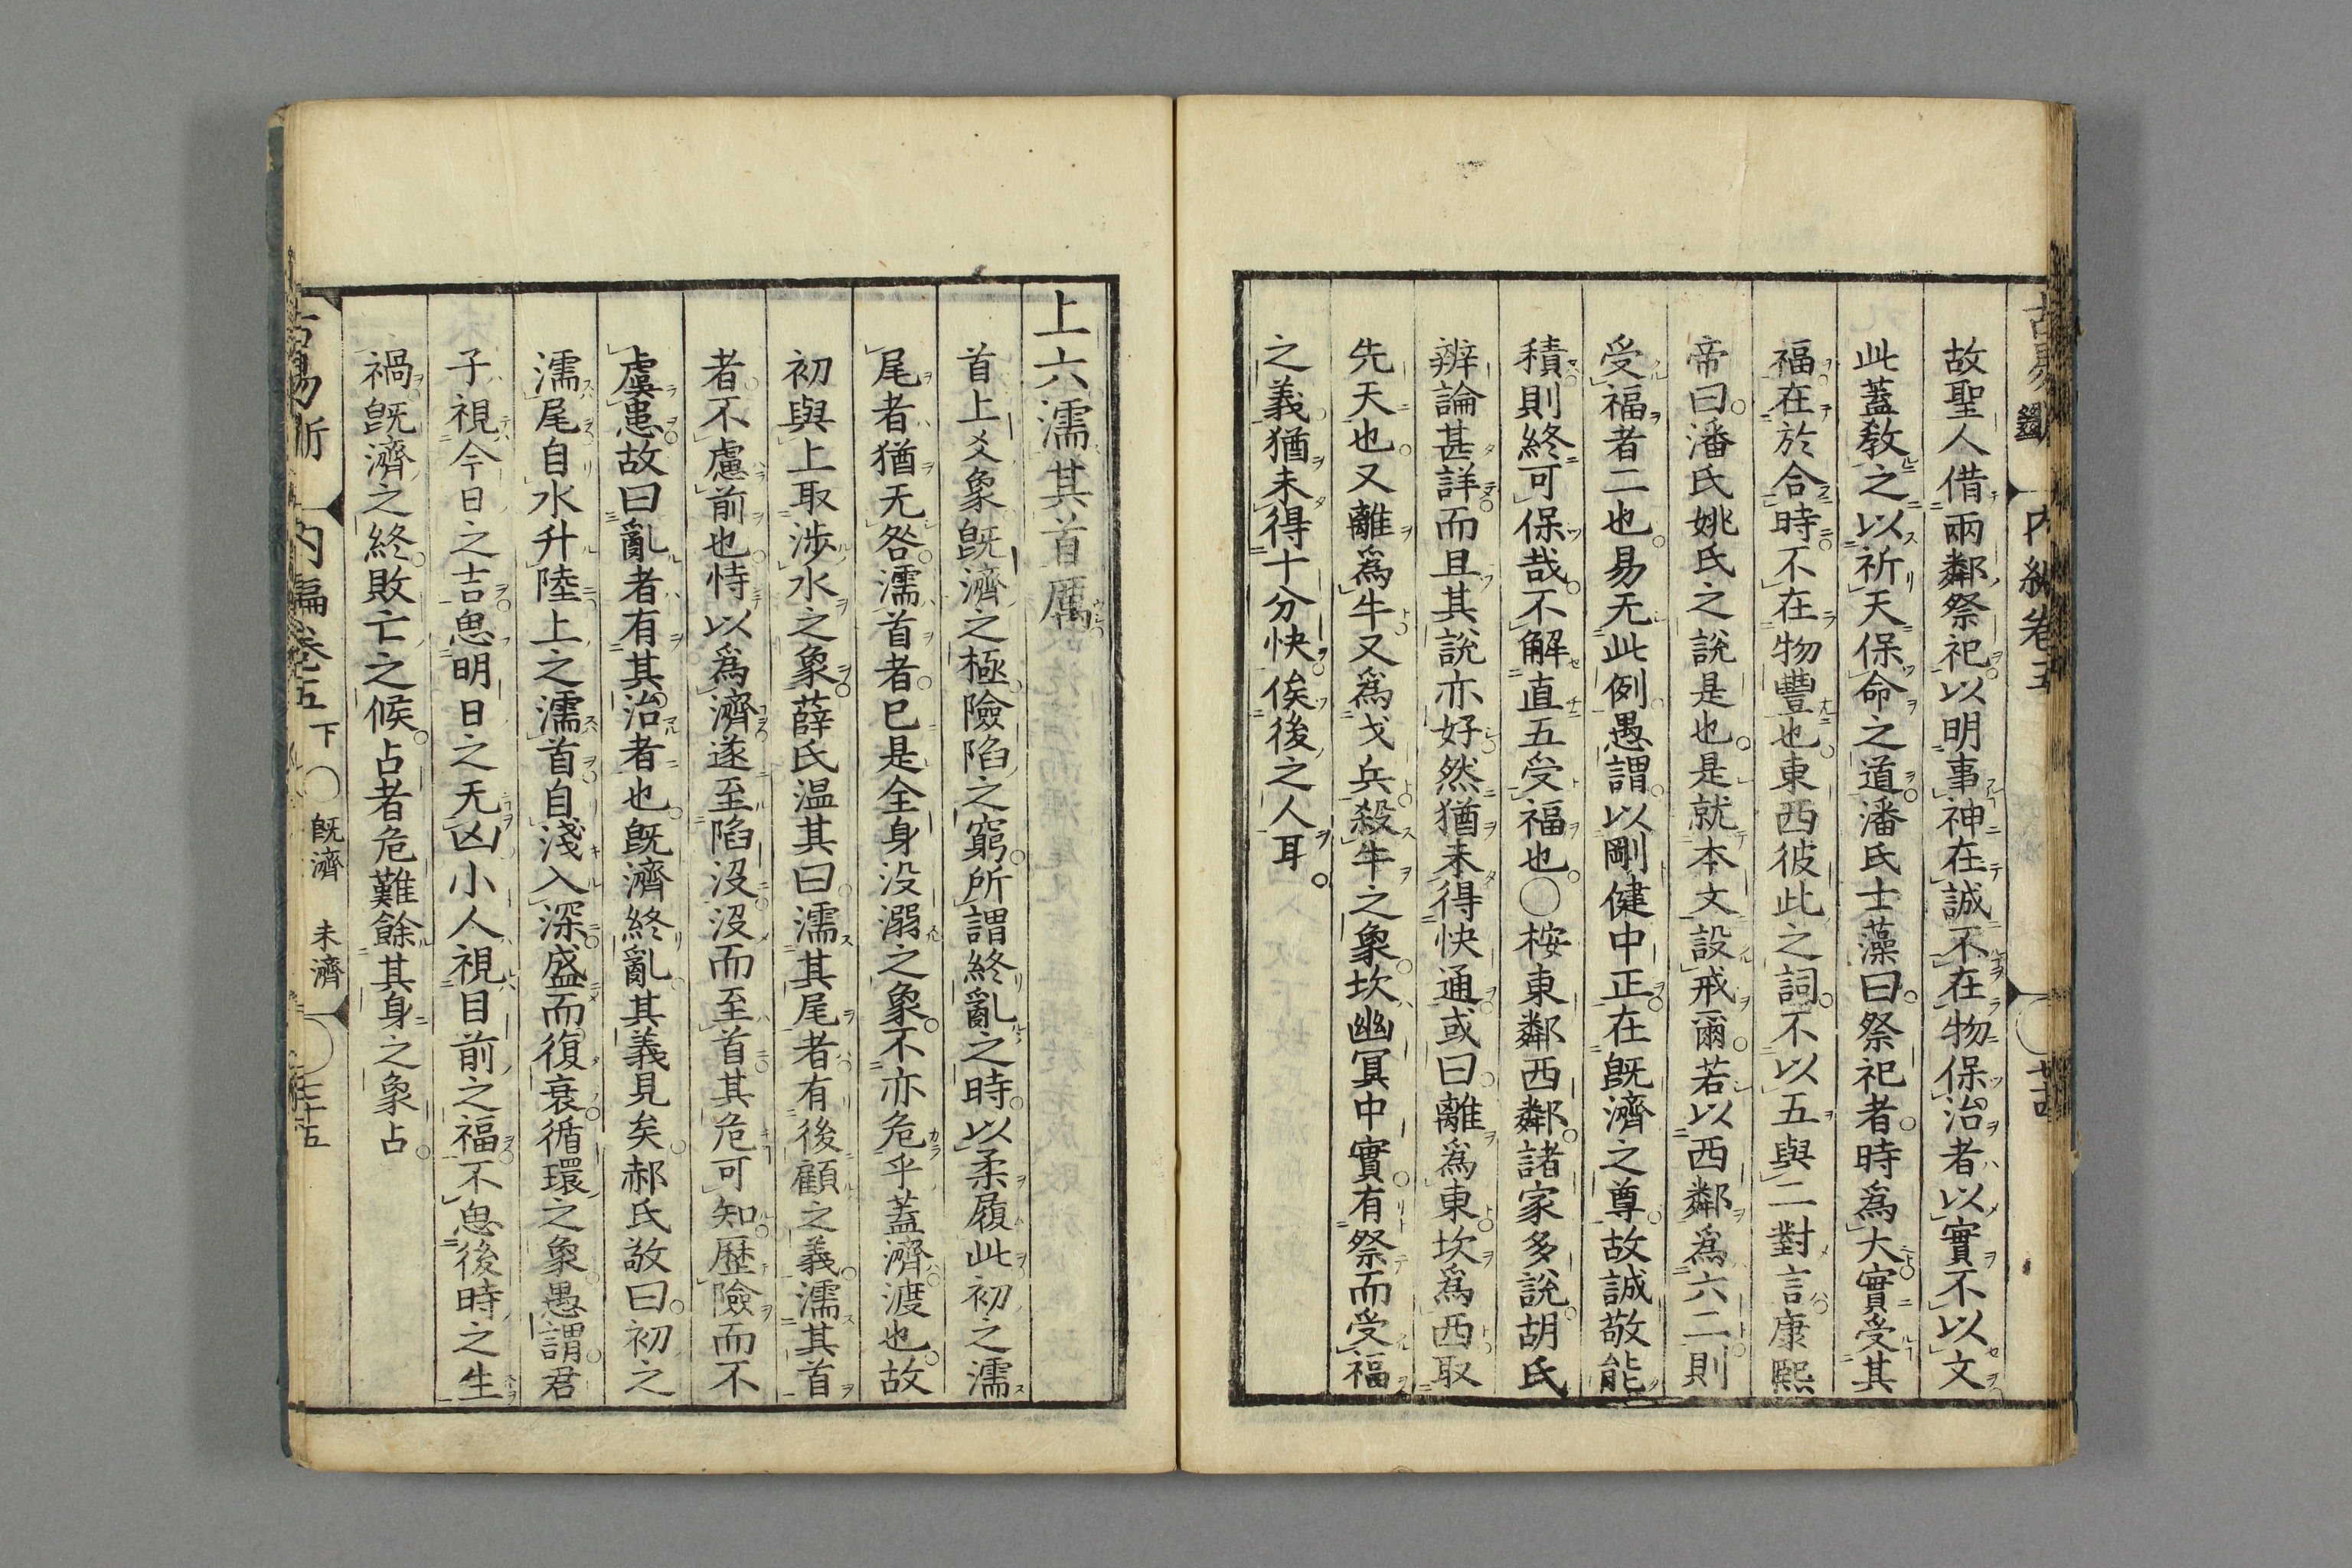 故聖人借兩鄰祭祀以明事神在誠不在物保治者以實不以文
此蓋教之以祈天保命之道潘氏士藻曰祭祀者時爲大實受其
福在於合時不在物豐也東西彼此之詞不以五與二對言康熙
帝曰潘氏姚氏之說是也是就本文設戒爾若以西鄰爲六二則
受福者二也易无此例愚謂以剛健中正在既濟之尊故誠敬能
積則終可保哉不解直五受福也○桉東鄰西鄰諸家多說胡氏
辨論甚詳而且其說亦好然猶未得快通或曰離爲東坎爲西取
先天也又離爲牛又爲戈兵殺牛之象坎幽冥中實有祭而受福
之義猶未得十分快俟後之人耳
上六濡其首厲
首上爻象既濟之極險陷之窮所謂終亂之時以柔履此初之濡
尾者猶无咎濡首者已是全身没溺之象不亦危乎蓋濟渡也故
初與上取涉水之象薛氏温其曰濡其尾者有後顧之義濡其首
者不慮前也恃以爲濟遂至陷沒沒而至首其危可知歷險而不
虞患故曰亂者有其治者也既濟終亂其義見矣郝氏敬曰初之
濡尾自水升陸上之濡首自淺入深盛而復衰循環之象愚謂君
子視今日之吉思明日之无凶小人視目前之福不思後時之生
禍既濟之終敗亡之候占者危難餘其身之象占
内編卷五 下 ○ 既濟 未濟 七十五